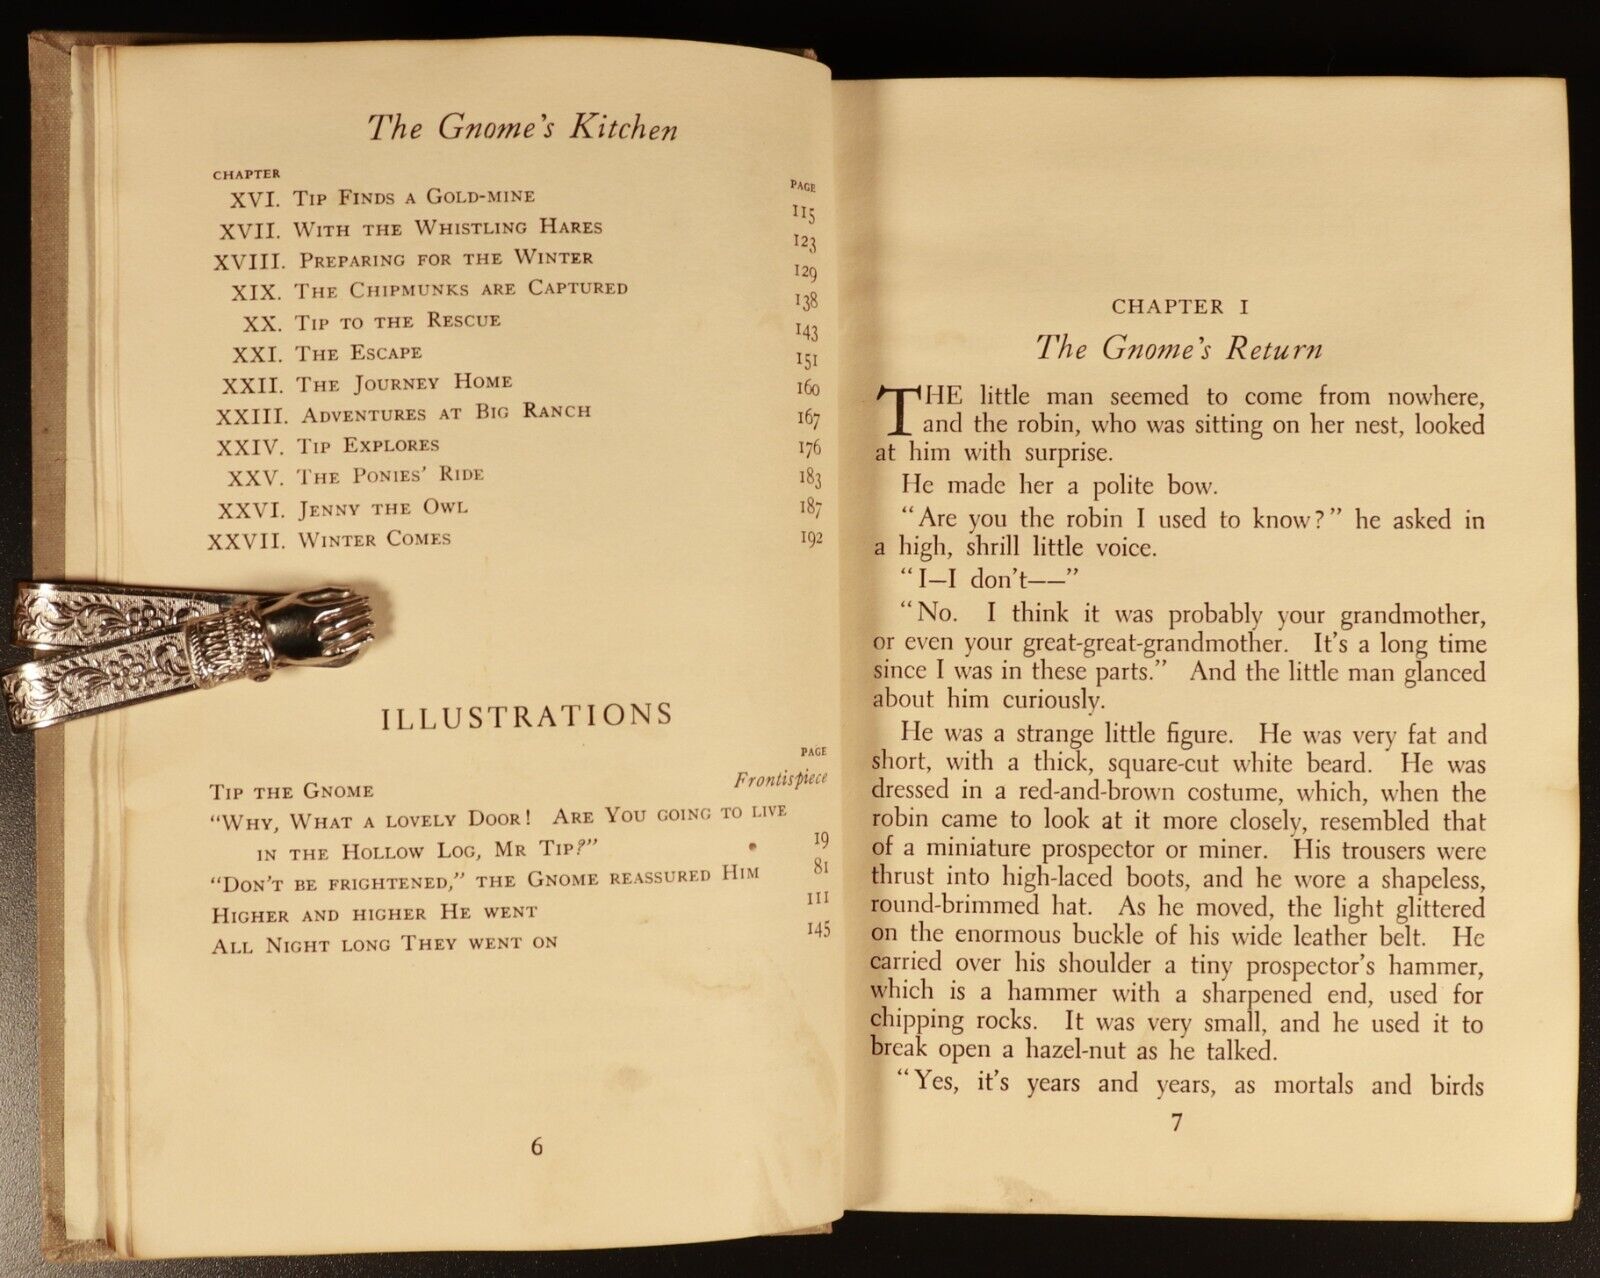 The Gnome's Kitchen
CHAPTER PAGE
XVI. TIP FINDS A GOLD-MINE 115
XVII. WITH THE WHISTLING HARES 123
XVIII. PREPARING FOR THE WINTER 129
XIX. THE CHIPMUNKS ARE CAPTURED 138
XX. TIP TO THE RESCUE 143
XXI. THE ESCAPE 151
XXII. THE JOURNEY HOME 160
XXIII. ADVENTURES AT BIG RANCH 167
XXIV. TIP EXPLORES 176
XXV. THE PONIES' RIDE 183
XXVI. JENNY THE OWL 187
XXVII. WINTER COMES 192
ILLUSTRATIONS
PAGE
TIP THE GNOME Frontispiece
"WHY, WHAT A LOVELY DOOR! ARE YOU GOING TO LIVE
IN THE HOLLOW LOG, MR TIP?" 19
"DON'T BE FRIGHTENED," THE GNOME REASSURED HIM 81
HIGHER AND HIGHER HE WENT 111
ALL NIGHT LONG THEY WENT ON 145
6
CHAPTER I
The Gnome's Return
THE little man seemed to come from nowhere,
and the robin, who was sitting on her nest, looked
at him with surprise.
He made her a polite bow.
"Are you the robin I used to know?" he asked in
a high, shrill little voice.
"I—I don't——"
"No. I think it was probably your grandmother,
or even your great-great-grandmother. It's a long time
since I was in these parts." And the little man glanced
about him curiously.
He was a strange little figure. He was very fat and
short, with a thick, square-cut white beard. He was
dressed in a red-and-brown costume, which, when the
robin came to look at it more closely, resembled that
of a miniature prospector or miner. His trousers were
thrust into high-laced boots, and he wore a shapeless,
round-brimmed hat. As he moved, the light glittered
on the enormous buckle of his wide leather belt. He
carried over his shoulder a tiny prospector's hammer,
which is a hammer with a sharpened end, used for
chipping rocks. It was very small, and he used it to
break open a hazel-nut as he talked.
"Yes, it's years and years, as mortals and birds
7